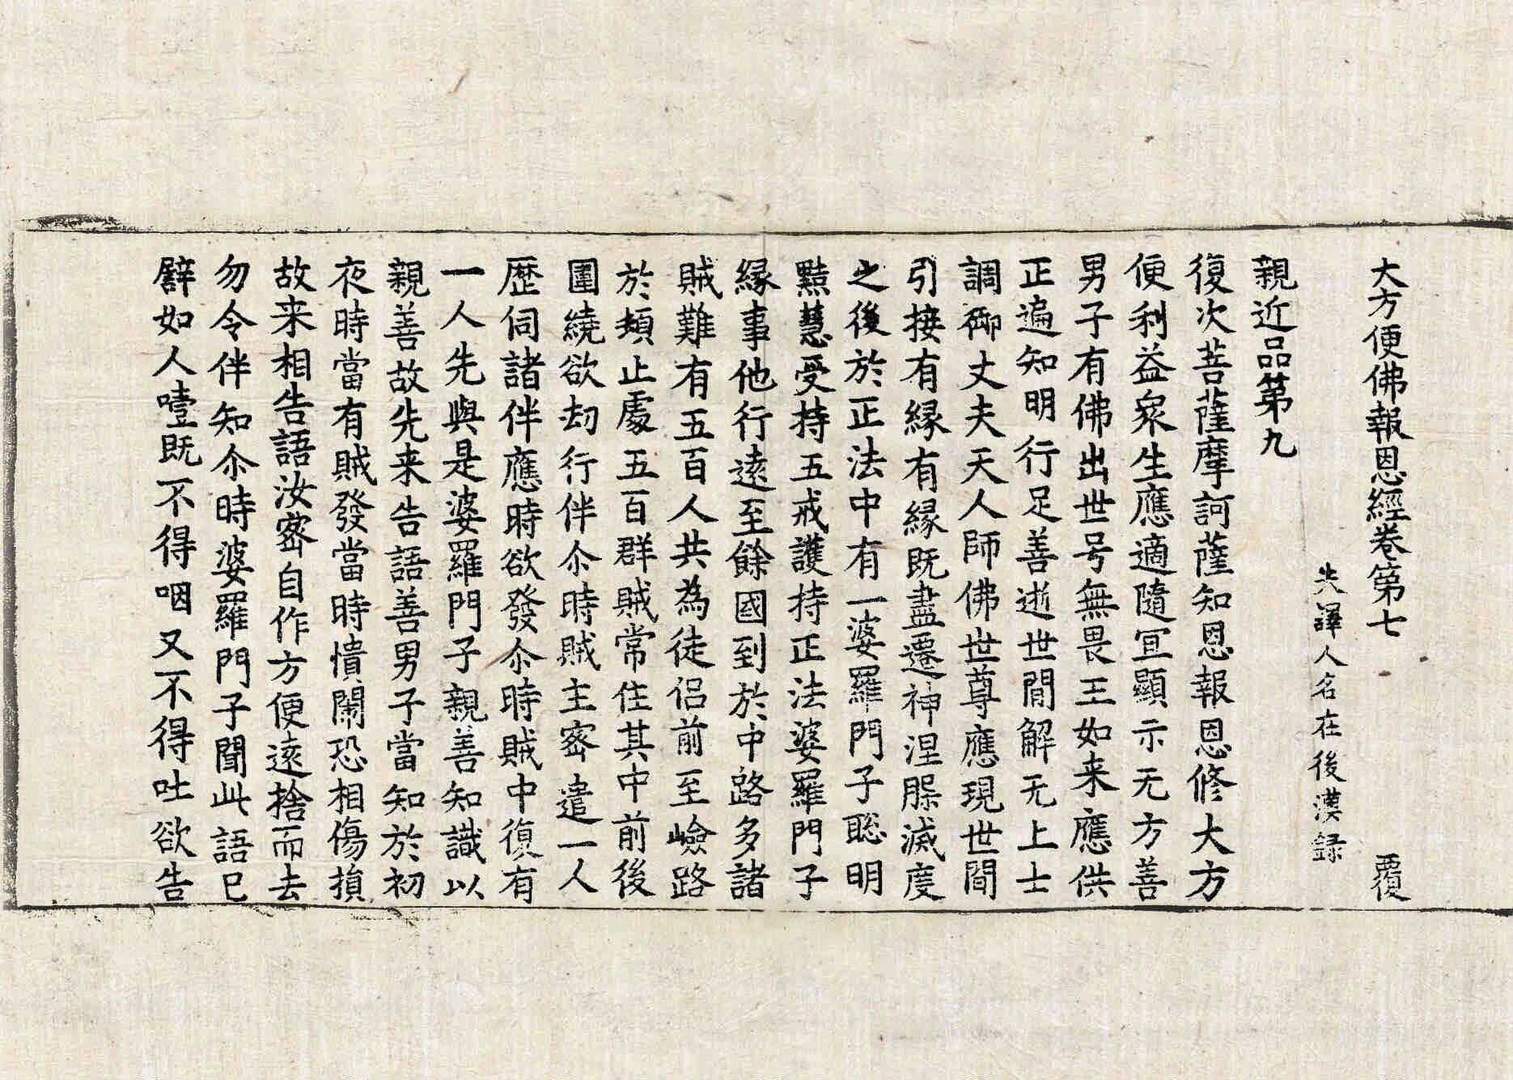 大方便佛報恩經卷第七　覆
失譯人名在後漢録
親近品第九
復次菩薩摩訶薩知恩報恩修大方
便利益衆生應適隨冝顯示无方善
男子有佛出世号無畏王如来應供
正遍知明行足善逝世間解无上士
調御丈夫天人師佛世尊應現世間
引接有縁有縁既盡遷神涅槃滅度
之後於正法中有一婆羅門子聡明
黠慧受持五戒護持正法婆羅門子
縁事他行逺至餘國到於中路多諸
賊難有五百人共為徒侣前至嶮路
於頰止處五百群賊常住其中前後
圍繞欲刧行伴尒時賊主密遣一人
歴伺諸伴應時欲發尒時賊中復有
一人先與是婆羅門子親善知識以
親善故先来告語善男子當知於初
夜時當有賊發當時憒閙恐相傷損
故来相告語汝密自作方便逺捨而去
勿令伴知尒時婆羅門子聞此語已
譬如人噎既不得咽又不得吐欲告